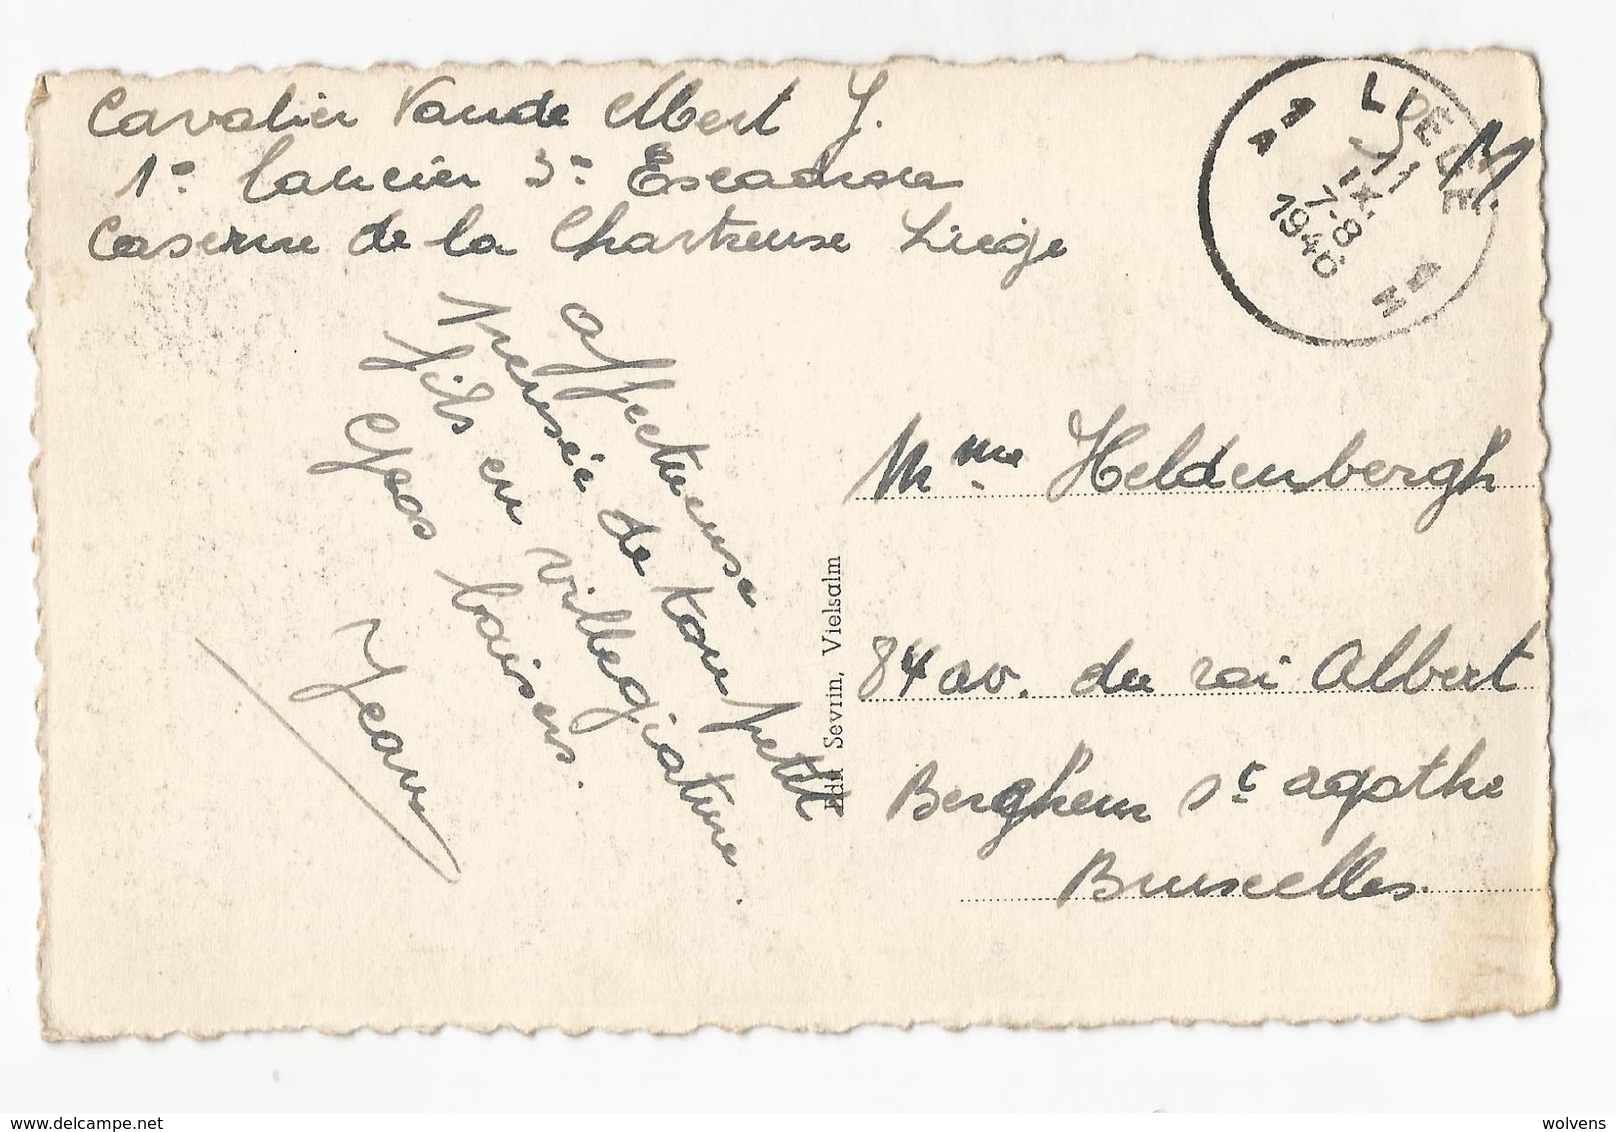 Cavalier Vande Albert J.
1° Lancier 3° Escadron
Caserne de la Chartreuse Liège
affectueuse
pensée de ton petit
fils en villegiature.
Gros baisers.
Jean
L DELLE
1 A
11
IX
7-8
1946
1 M
M.
Mme Heldenbergh
84 av. du roi Albert
Berghem St agathe
Bruxelles.
Edit Sevrin, Vielsalm
www.delcampe.net
wolvens